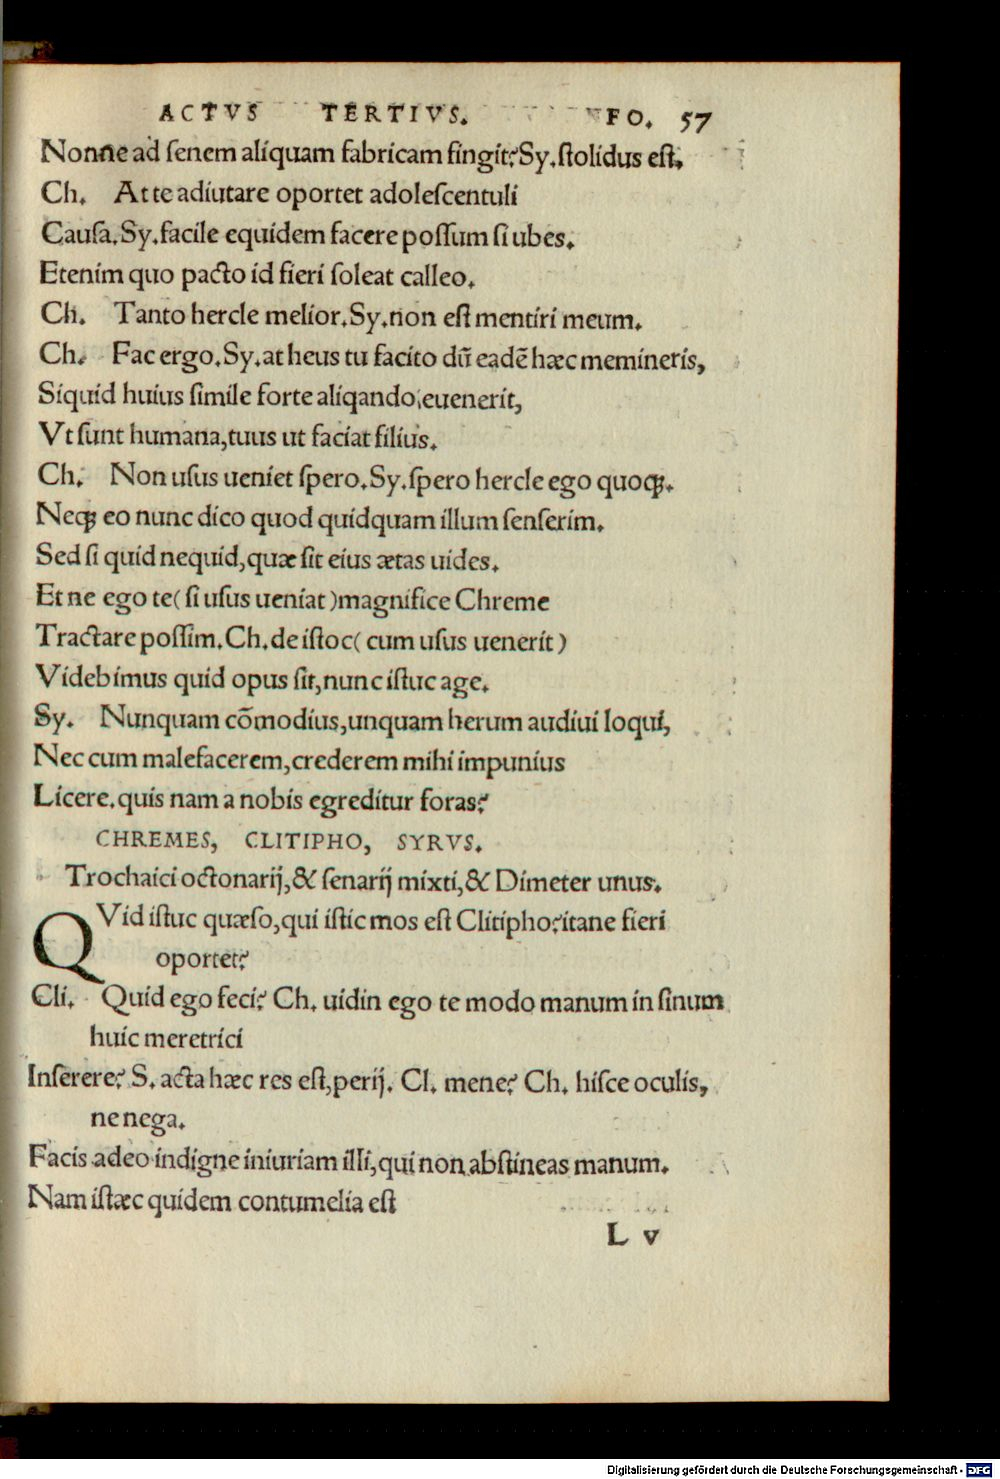 ACTVS TERTIVS. FO. 57
Nonne ad ſenem aliquam fabricam fingit? Sy. ſtolidus eſt,
Ch. At te adiutare oportet adoleſcentuli
Cauſa. Sy. facile equidem facere poſſum ſi ubes.
Etenim quo pacto id fieri ſoleat calleo.
Ch. Tanto hercle melior. Sy. non eſt mentiri meum.
Ch. Fac ergo. Sy. at heus tu facito dũ eadẽ hæc memineris,
Siquid huius ſimile forte aliqando euenerit,
Vt ſunt humana, tuus ut faciat filius.
Ch. Non uſus ueniet ſpero. Sy. ſpero hercle ego quoqꝫ.
Neqꝫ eo nunc dico quod quidquam illum ſenſerim.
Sed ſi quid nequid, quæ ſit eius ætas uides.
Et ne ego te (ſi uſus ueniat) magnifice Chreme
Tractare poſſim. Ch. de iſtoc (cum uſus uenerit)
Videbimus quid opus ſit, nunc iſtuc age.
Sy. Nunquam cõmodius, unquam herum audiui loqui,
Nec cum malefacerem, crederem mihi impunius
Licere. quis nam a nobis egreditur foras?
CHREMES, CLITIPHO, SYRVS.
Trochaici octonarij, & ſenarij mixti, & Dimeter unus.
QVid iſtuc quæſo, qui iſtic mos eſt Clitipho? itane fieri
oportet?
Cli. Quid ego feci? Ch. uidin ego te modo manum in ſinum
huic meretrici
Inſerere? S. acta hæc res eſt, perij. Cl. mene? Ch. hiſce oculis,
ne nega.
Facis adeo indigne iniuriam illi, qui non abſtineas manum.
Nam iſtæc quidem contumelia eſt
L v
Digitalisierung gefördert durch die Deutsche Forschungsgemeinschaft - DFG